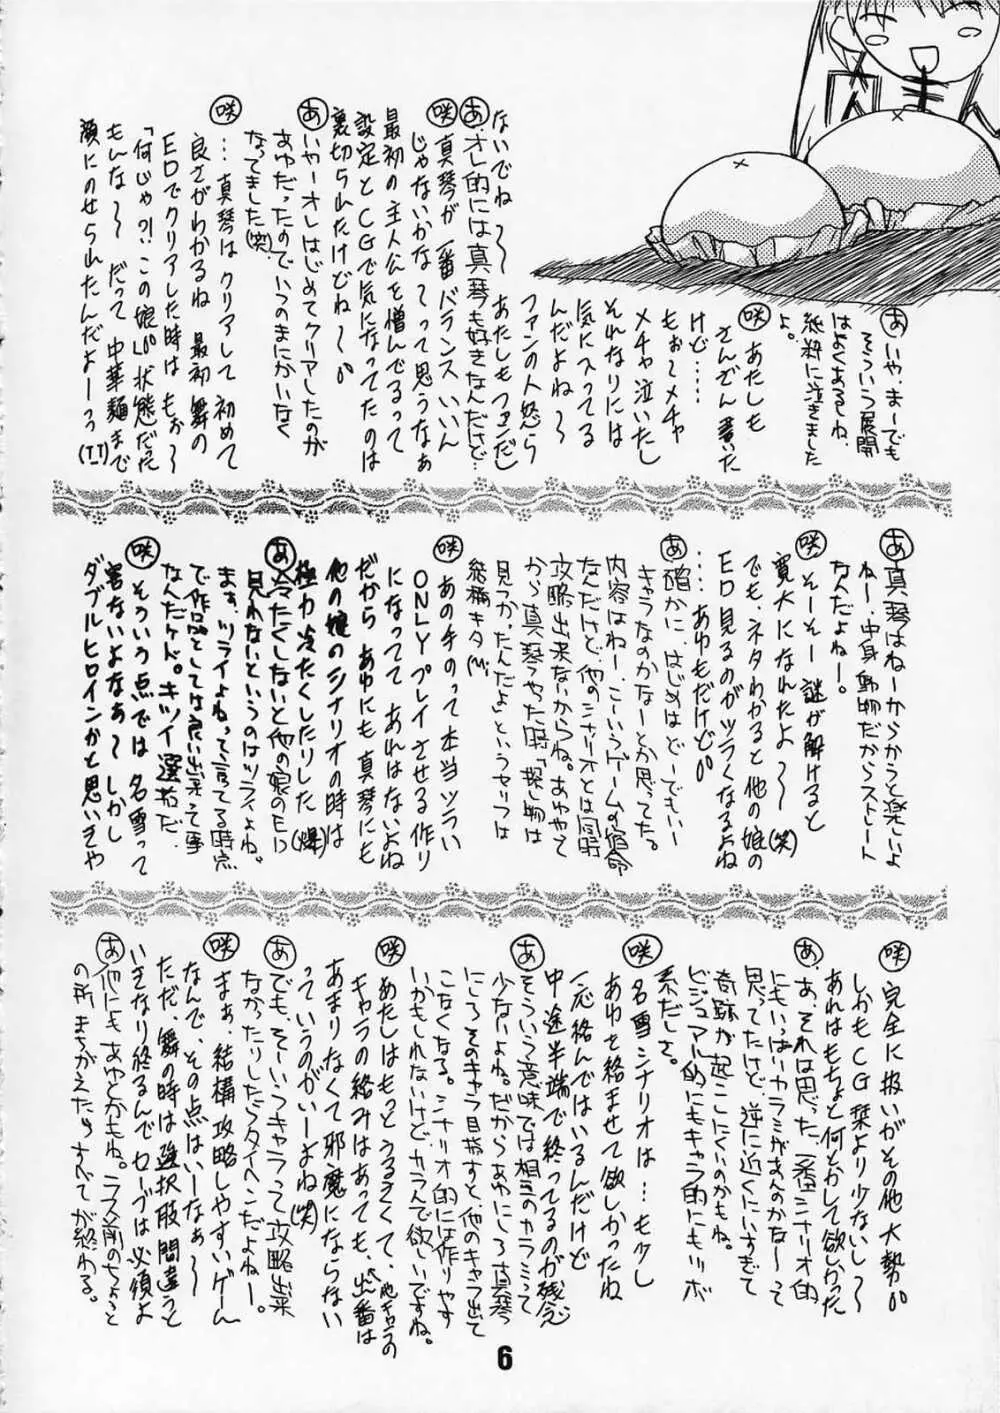 あ いや、まーでも
そういう展開
はよくあるしね、
純粋に泣きました
よ。
咲 あたしも
さんざん書いた
けど……
もぉ〜メチャ
メチャ泣いたし
それなりには
気に入ってる
んだよね〜
ファンの人怒ら
ないでね〜 あたしもファンだし
あ オレ的には真琴も好きなんだけど…
咲 真琴が一番バランスいいん
じゃないかなって思うなぁ
最初の主人公を憎んでるって
設定とCGで気になってたのは
裏切られたけどね〜。。
あ いやーオレはじめてクリアしたのが
あゆだったのでいつのまにかいなく
なってました(笑)
咲 …真琴はクリアして初めて
良さがわかるね 最初舞の
EDでクリアした時はもぉ〜
「何じゃ?!この娘」状態だた
もんな〜 だって中華麺まで
顔にのせられたんだよーっ(T_T)
あ 真琴はねーからかうと楽しいよ
ねー、中身動物だからストレート
なんだよねー。
咲 そーそー 謎が解けると
寛大になれたよ〜(笑)
でも、ネタわかると他の娘の
ED見るのがツラくなるよね
……あゆもだけど。。
あ 確かに、はじめはどーでもいー
キャラなのかなーとか思ってた。
内容はねー、こーいうゲームの宿命
なんだけど、他のシナリオとは同時
攻略出来ないからね。あゆやって
から真琴やった時「探し物は
見つかったんだよ」というセリフは
結構キタ
咲 あの手のって本当ツライ
ONLYプレイさせる作り
になってて あれはないよね
だから あゆにも真琴にも
他の娘のシナリオの時は
極力冷たくしたりした(爆)
あ 冷たくしないと他の娘のED
見れないというのはツライよね。
ます、ツライよねって言てる時点
で作品としては良い出来って事
なんだケド。キツイ選択だ。
咲 そういう点では名雪って
害ないよなぁ〜しかし
ダブルヒロインかと思いきや
咲 完全に扱いがその他大勢。。
しかもCG栞より少ないし〜
あれはもちょと何とかして欲しかった
あ あ、それは思った、一応シナリオ的
にもいっぱいカラミがあんのかなーって
思ってたけど、逆に近くにいすぎて
奇跡が起こりにくいのかもね。
ビジュアル的にもキャラ的にもツボ
系だしさ。
咲 名雪シナリオは…も少し
あゆと絡ませて欲しかったね
一応絡んではいるんだけど
中途半端で終ってるのが残念
あ そういう意味では相互のカラミって
少ないよね。だからあゆにしろ真琴
にしろそのキャラ目指すと、他のキャラ出て
こなくなる。シナリオ的には作りやす
いかもしれないけど、カラんで欲しいですね。
咲 あたしはもっとうるさくて、他キャラの
キャラの絡みはあっても、出番は
あまりなくて邪魔にならない
っていうのがいーよね(笑)
あ でも、そーいうキャラって攻略出来
なかったりしたらタイヘンだよねー。
咲 まぁ、結構攻略しやすいゲーム
なんで、その点はいーなぁ〜
ただ、舞の時は選択肢間違うと
いきなり終るんでセーブは必須よ
あ 他にもあゆとかもね。ラス前のちょっと
の所まちがえたらすべてが終わる。
6